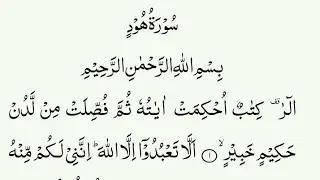 سُوْرَةُ هُوْدٍ
بِسْمِ اللهِ الرَّحْمٰنِ الرَّحِيْمِ
الٓرٰ ۟ كِتٰبٌ اُحْكِمَتْ اٰيٰتُهٗ ثُمَّ فُصِّلَتْ مِنْ لَّدُنْ
حَكِيْمٍ خَبِيْرٍ ۙ ۝١ اَلَّا تَعْبُدُوْۤا اِلَّا اللهَ ؕ اِنَّنِيْ لَكُمْ مِّنْهُ